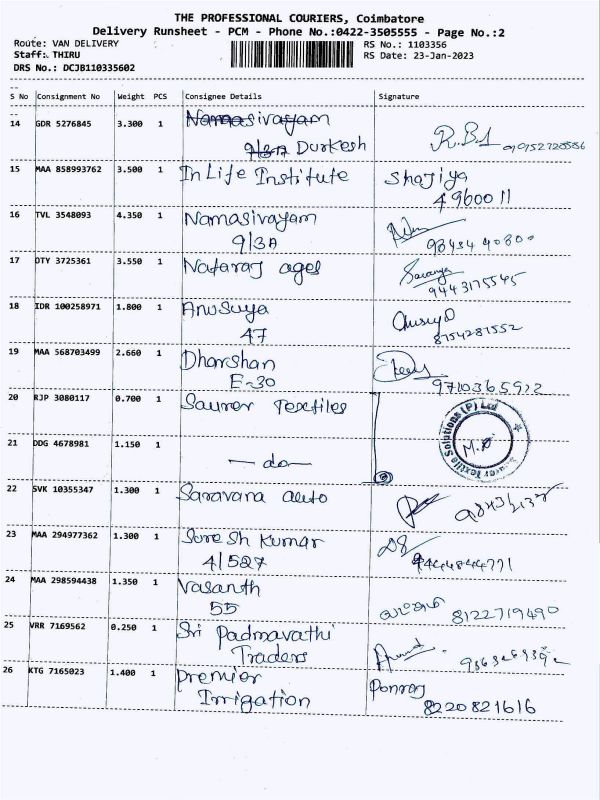 THE PROFESSIONAL COURIERS, Coimbatore
Delivery Runsheet - PCM - Phone No.:0422-3505555 - Page No.:2
Route: VAN DELIVERY
Staff: THIRU
DRS No.: DCJB110335602
RS No.: 1103356
RS Date: 23-Jan-2023
S No Consignment No Weight PCS Consignee Details Signature
14 GDR 5276845 3.300 1 Namasivayam
Durkesh
R.B.1
15 MAA 858993762 3.500 1 InLife Institute Shajiya
4960011
16 TVL 3548093 4.350 1 Namasivayam
9/3A
17 OTY 3725361 3.550 1 Nataraj ages Saranya
9443175545
18 IDR 100258971 1.800 1 Anusuya
47
8754281552
19 MAA 568703499 2.660 1 Dharshan
E-30
9710365912
20 RJP 3080117 0.700 1 Saurer Textiles
21 DDG 4678981 1.150 1
—do—
Saurer Textile Solutions (P) Ltd
22 SVK 10355347 1.300 1 Saravana auto
23 MAA 294977362 1.300 1 Suresh Kumar
4/527
9444844771
24 MAA 298594438 1.350 1 Vasanth
55
8122719490
25 VRR 7169562 0.250 1 Sri Padmavathi
Traders
26 KTG 7165023 1.400 1 Premier
Irrigation
Ponraj
8220821616